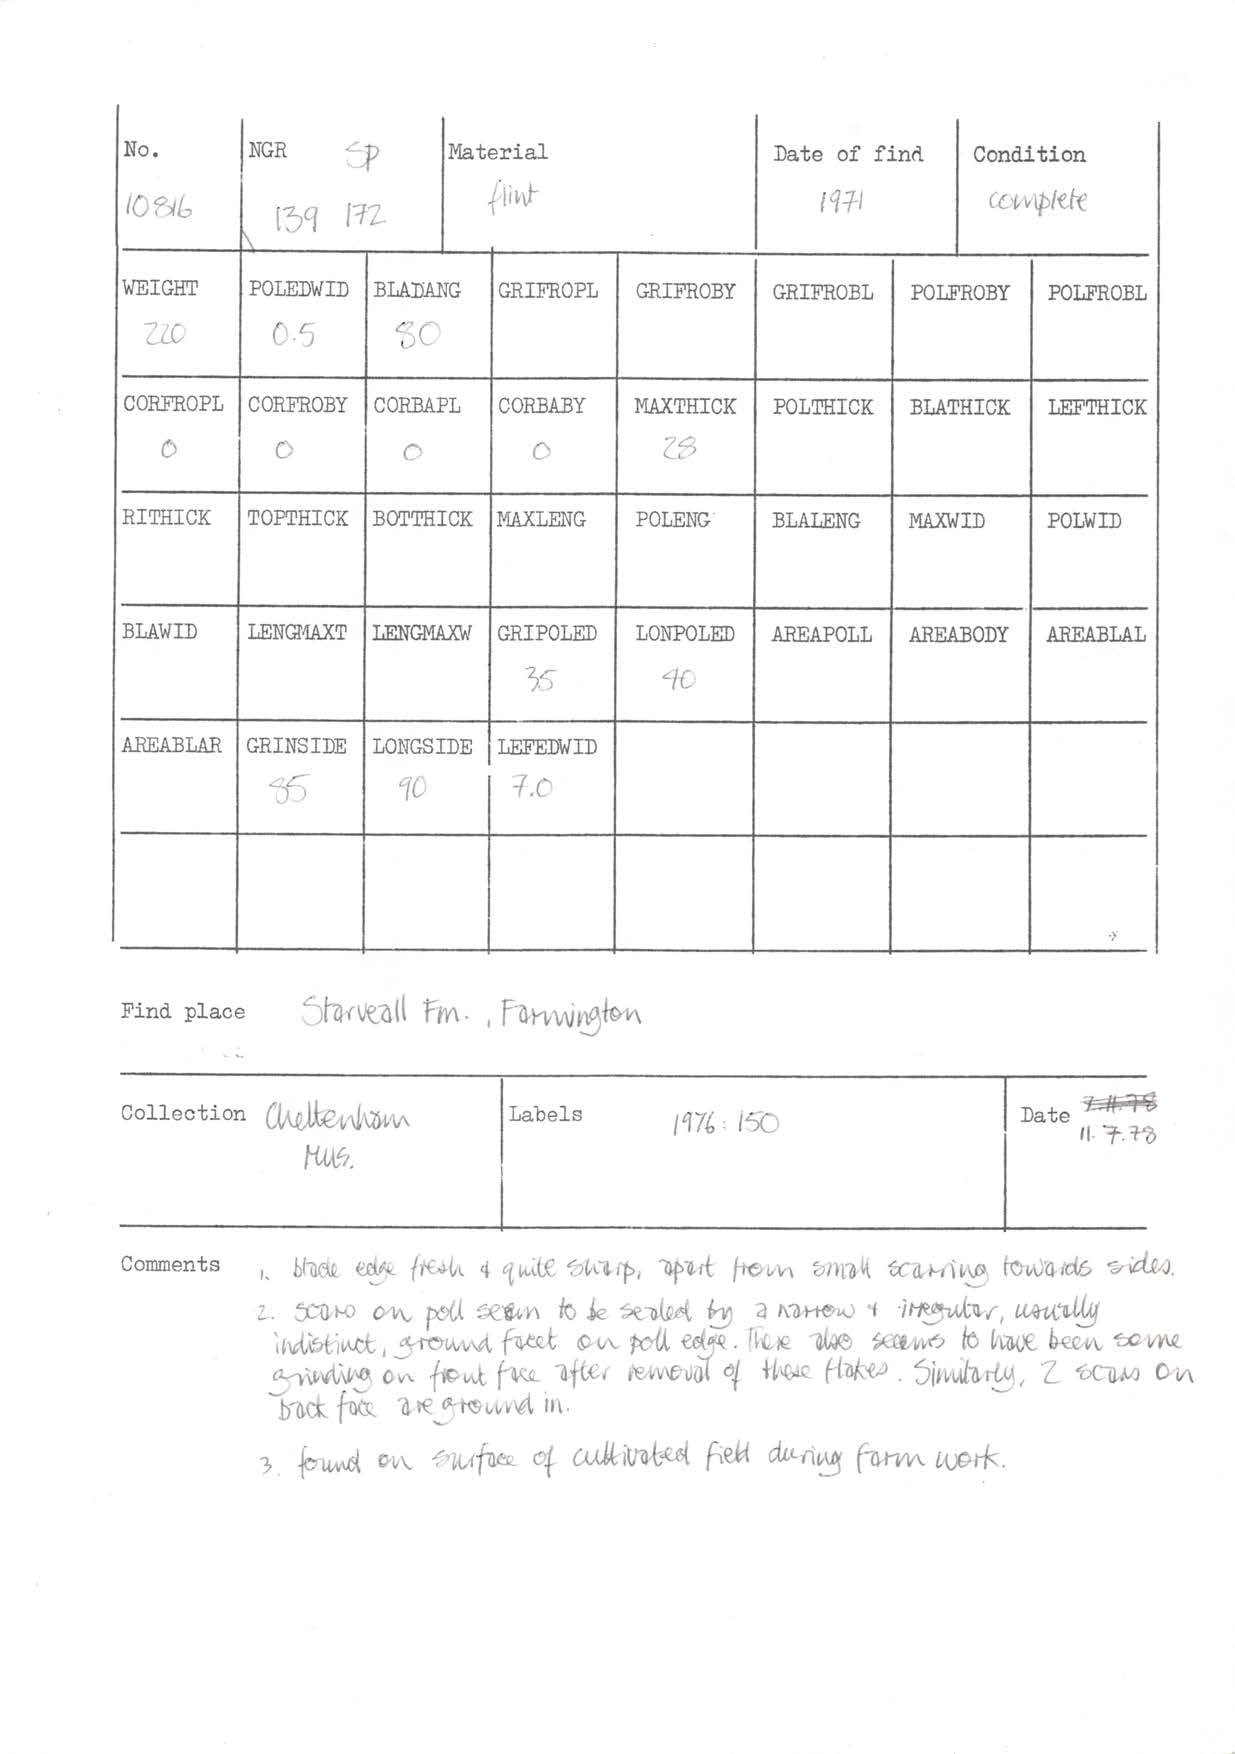 No. NGR SP Material Date of find Condition
10816 139 172 flint 1971 complete
WEIGHT POLEDWID BLADANG GRIFROPL GRIFROBY GRIFROBL POLFROBY POLFROBL
220 0.5 80
CORFROPL CORFROBY CORBAPL CORBABY MAXTHICK POLTHICK BLATHICK LEFTHICK
0 0 0 0 28
RITHICK TOPTHICK BOTTHICK MAXLENG POLENG BLALENG MAXWID POLWID
BLAWID LENGMAXT LENGMAXW GRIPOLED LONPOLED AREAPOLL AREABODY AREABLAL
35 40
AREABLAR GRINSIDE LONGSIDE LEFEDWID
85 90 7.0
Find place Starveall Fm., Farmington
Collection Cheltenham Labels 1976:150 Date 7.11.78
Mus. 11.7.78
Comments 1. blade edge fresh & quite sharp, apart from small scarring towards sides.
2. scars on poll seem to be sealed by a narrow & irregular, usually
indistinct, ground facet on poll edge. There also seems to have been some
grinding on front face after removal of these flakes. Similarly, 2 scars on
back face are ground in.
3. found on surface of cultivated field during farm work.